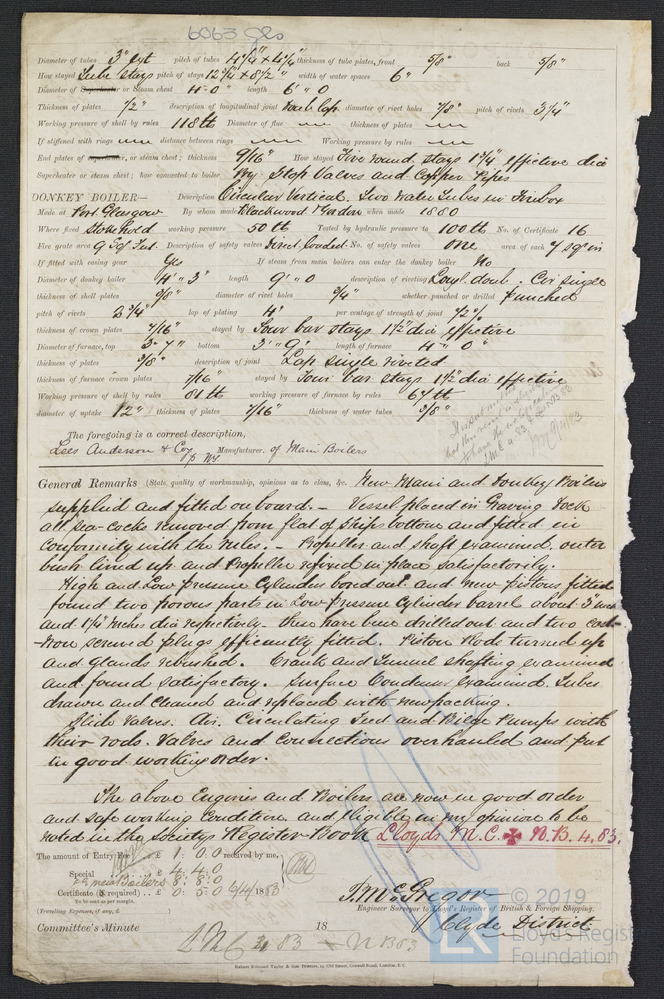 6063 Gls
Diameter of tubes 3" ext pitch of tubes 4¼" x 4¼" thickness of tube plates, front 5/8" back 5/8"
How stayed Tube stays pitch of stays 12¾" x 8½" width of water spaces 6"
Diameter of Superheater or Steam chest 4'-0" length 6'"0
Thickness of plates ½" description of longitudinal joint Doub Lap diameter of rivet holes 7/8" pitch of rivets 3¼"
Working pressure of shell by rules 118 lb Diameter of flue thickness of plates
If stiffened with rings distance between rings Working pressure by rules
End plates of superheater, or steam chest; thickness 9/16" How stayed Five round stays 1¾" effective dia
Superheater or steam chest; how connected to boiler By Stop Valves and Copper Pipes
DONKEY BOILER— Description Circular Vertical. Two Water Tubes in Firebox
Made at Port Glasgow By whom made Blackwood & Gordon when made 1880
Where fixed Stokehold working pressure 50 lb Tested by hydraulic pressure to 100 lb No. of Certificate 16
Fire grate area 9 Sq. Feet. Description of safety valves Direct loaded No. of safety valves One area of each 7 sq in
If fitted with easing gear Yes If steam from main boilers can enter the donkey boiler No
Diameter of donkey boiler 4'"3" length 9'"0 description of riveting Longl. doub. Cir single
thickness of shell plates 3/8" diameter of rivet holes ¾" whether punched or drilled Punched
pitch of rivets 2¾" lap of plating 4" per centage of strength of joint 72%
thickness of crown plates 7/16" stayed by Four bar stays 1½" dia effective
Diameter of furnace, top 3"7" bottom 3'"9" length of furnace 4"0"
thickness of plates 3/8" description of joint Lap single riveted
thickness of furnace crown plates 7/16" stayed by Four bar stays 1½" dia effective
Working pressure of shell by rules 81 lb working pressure of furnace by rules 67 lb
diameter of uptake 12" thickness of plates 7/16" thickness of water tubes 3/8"
The foregoing is a correct description,
Lees Anderson & Coy Manufacturer. of Main Boilers
General Remarks (State quality of workmanship, opinions as to class, &c. New Main and Donkey Boilers
supplied and fitted onboard. — Vessel placed in Graving Dock
all sea-cocks removed from flat of ships bottom and fitted in
conformity with the Rules. — Propeller and shaft examined. outer
bush lined up and Propeller refixed in place satisfactorily.
High and Low Pressure Cylinders bored out and new pistons fitted
found two porous parts in Low Pressure Cylinder barrel about 3 inch
and 1¼ inches dia respectively. these have been drilled out and two cast-
-iron screwed plugs efficiently fitted. Piston Rods turned up
and glands rebushed. Crank and Tunnel shafting examined
and found satisfactory. Surface Condenser examined. Tubes
drawn and cleaned and replaced with new packing.
Slide Valves. Air. Circulating Feed and Bilge Pumps with
their rods. Valves and connections overhauled and put
in good working order.
The above Engines and Boilers are now in good order
and safe working condition and eligible in my opinion to be
noted in the Society's Register Book Lloyds M. C. ✠ N. B. 4,83.
The amount of Entry Fee £ 1 : 0 : 0 received by me,
Special £ 4 : 4 : 0
F 2 new Boilers 8 : 8 : 0
Certificate (if required) .. £ 0 : 5 : 0 6/4/1883
To be sent as per margin.
(Travelling Expenses, if any, £ )
J. McGregor
Engineer Surveyor to Lloyd's Register of British & Foreign Shipping.
Clyde District
Committee's Minute 18
LMC 4 83 NB83
Robert Edmund Taylor & Son Printers, 19, Old Street, Goswell Road, London, E.C.
© 2019
LR
Lloyd's Regist
Foundation